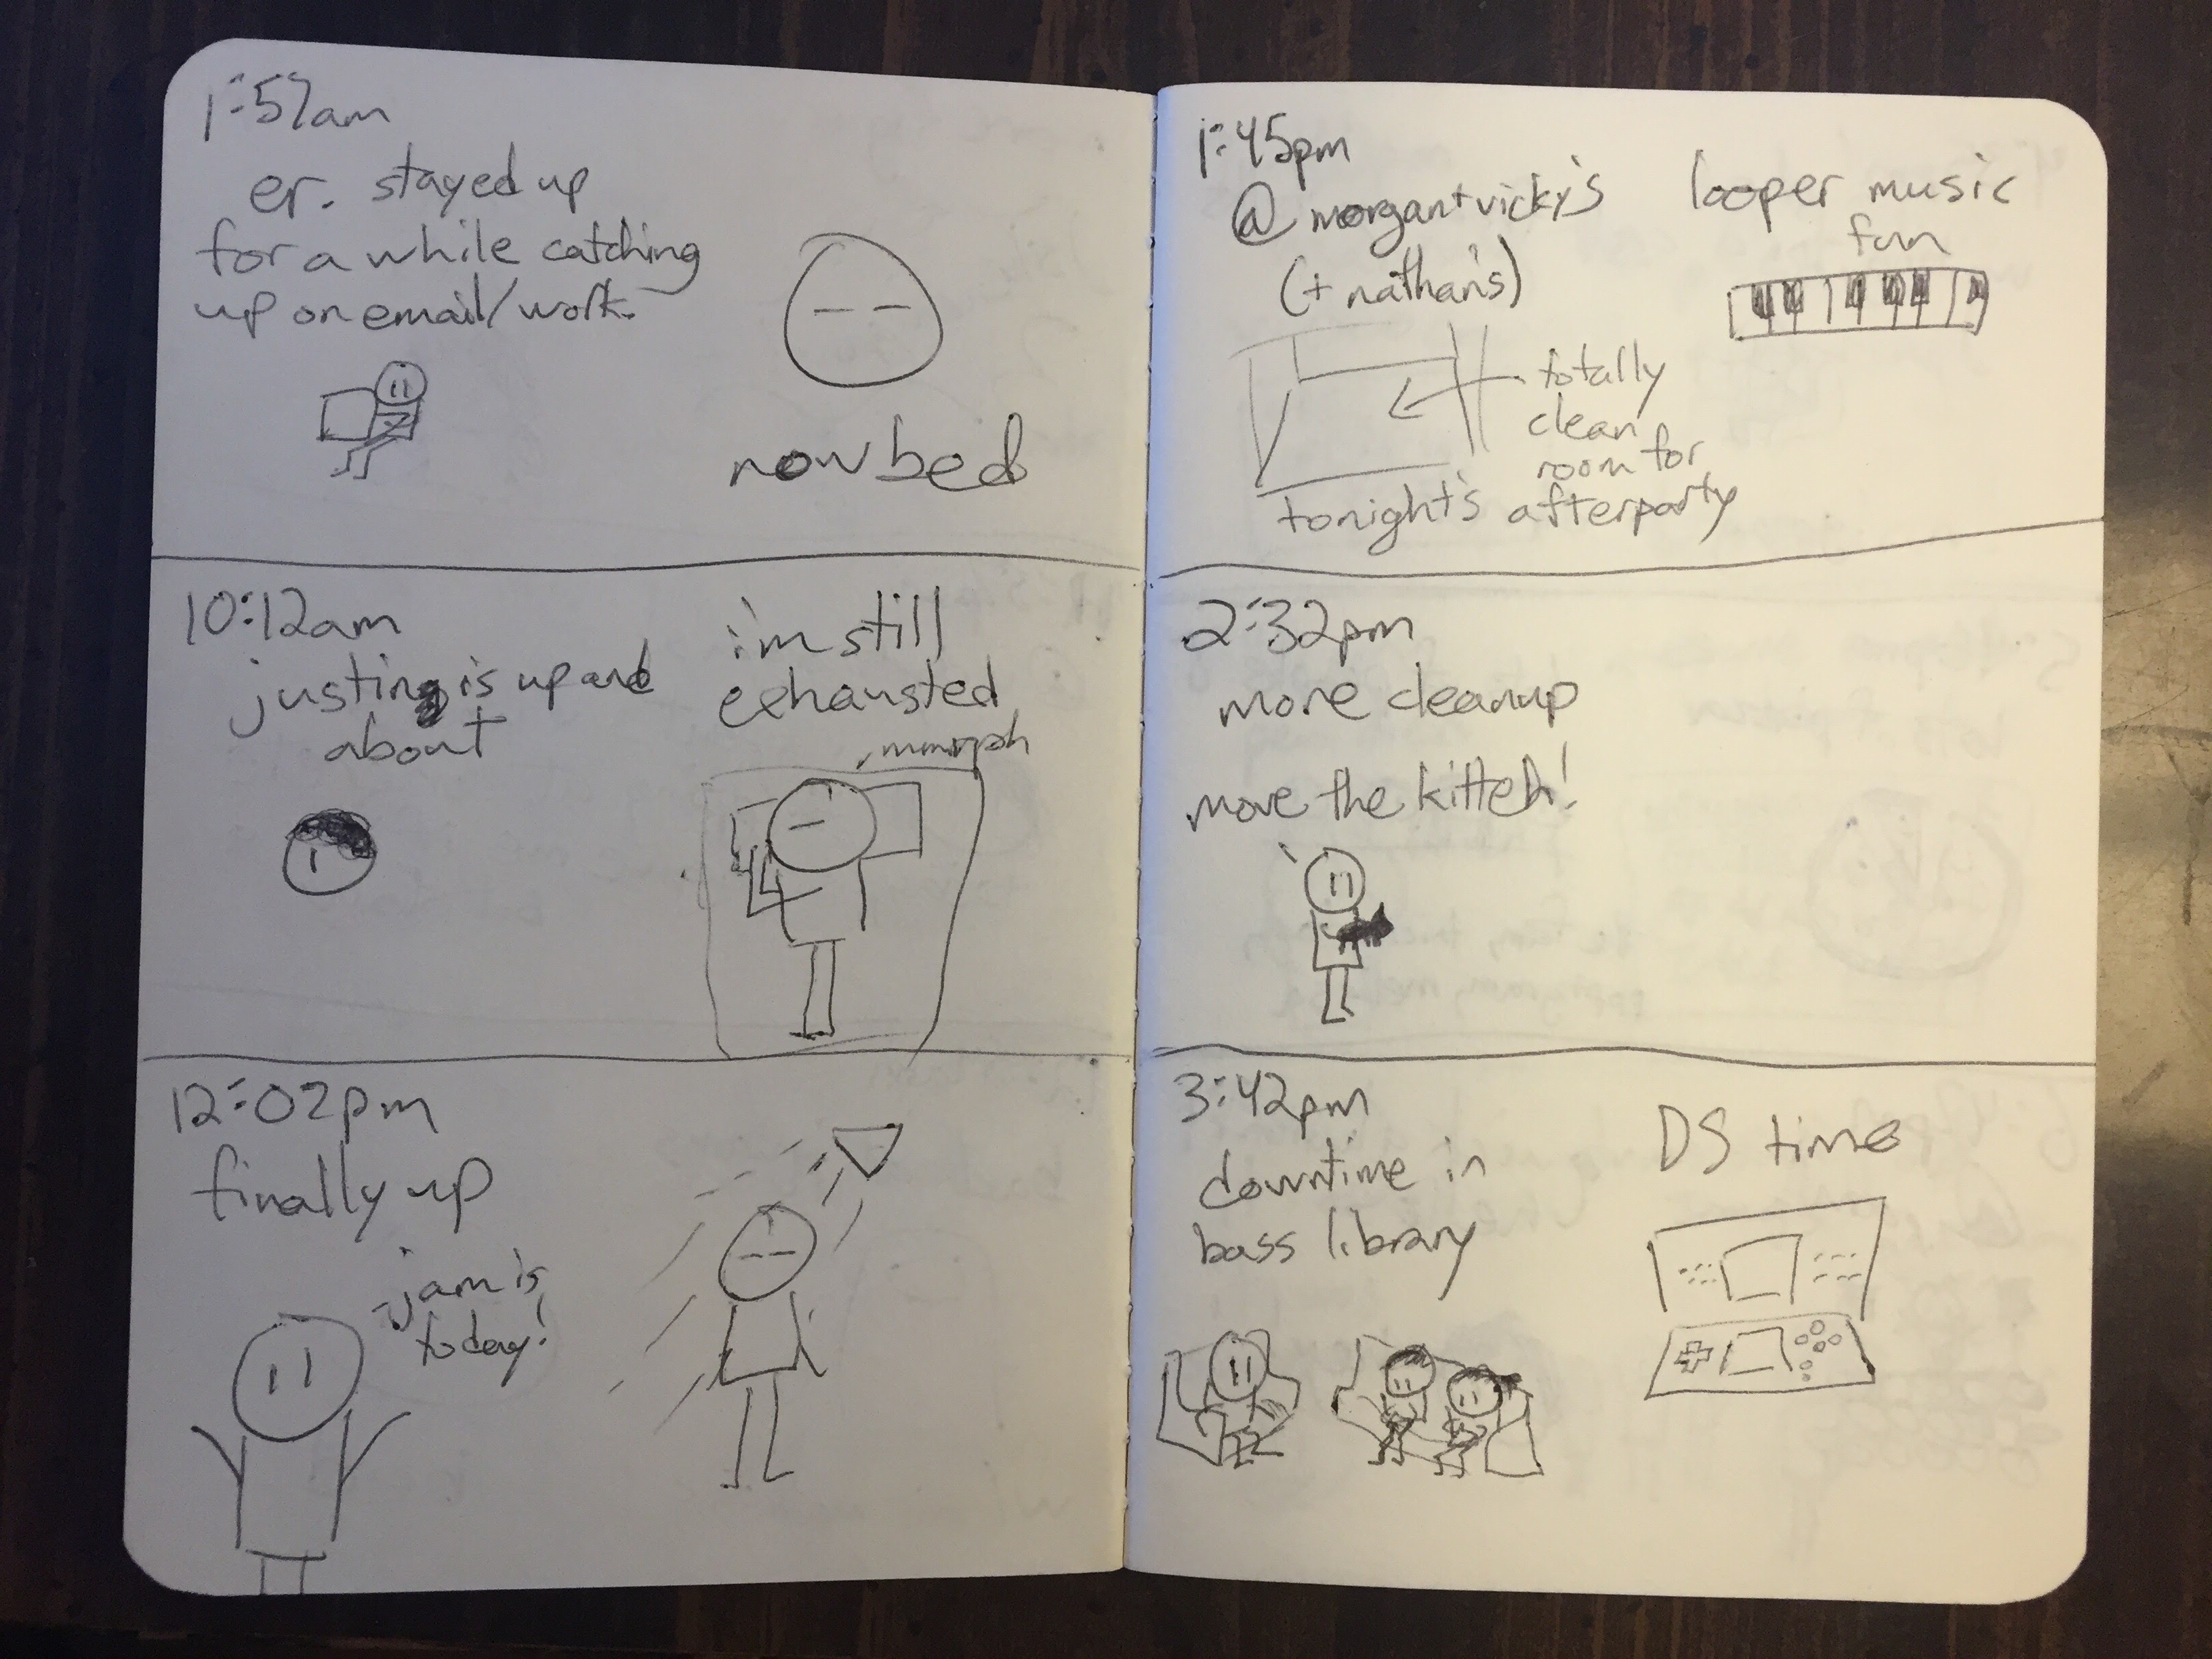 1:57am
er. stayed up
for a while catching
up on email/work.
now bed
10:12am
justin is up and
about
i'm still
exhausted
mmrph
12:02pm
finally up
jam is
today!
1:45pm
@ morgan+vicky's
(+ nathan's)
looper music
fun
totally
clean
room for
tonight's afterparty
2:32pm
more cleanup
move the kitteh!
3:42pm
downtime in
bass library
DS time